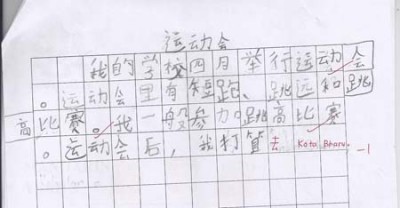 运动会
我的学校四月举行运动会
。运动会里有短跑、跳远和跳
高比赛。我一般参加跳高比赛
。运动会后，我打算去 Kota Bharu. -1